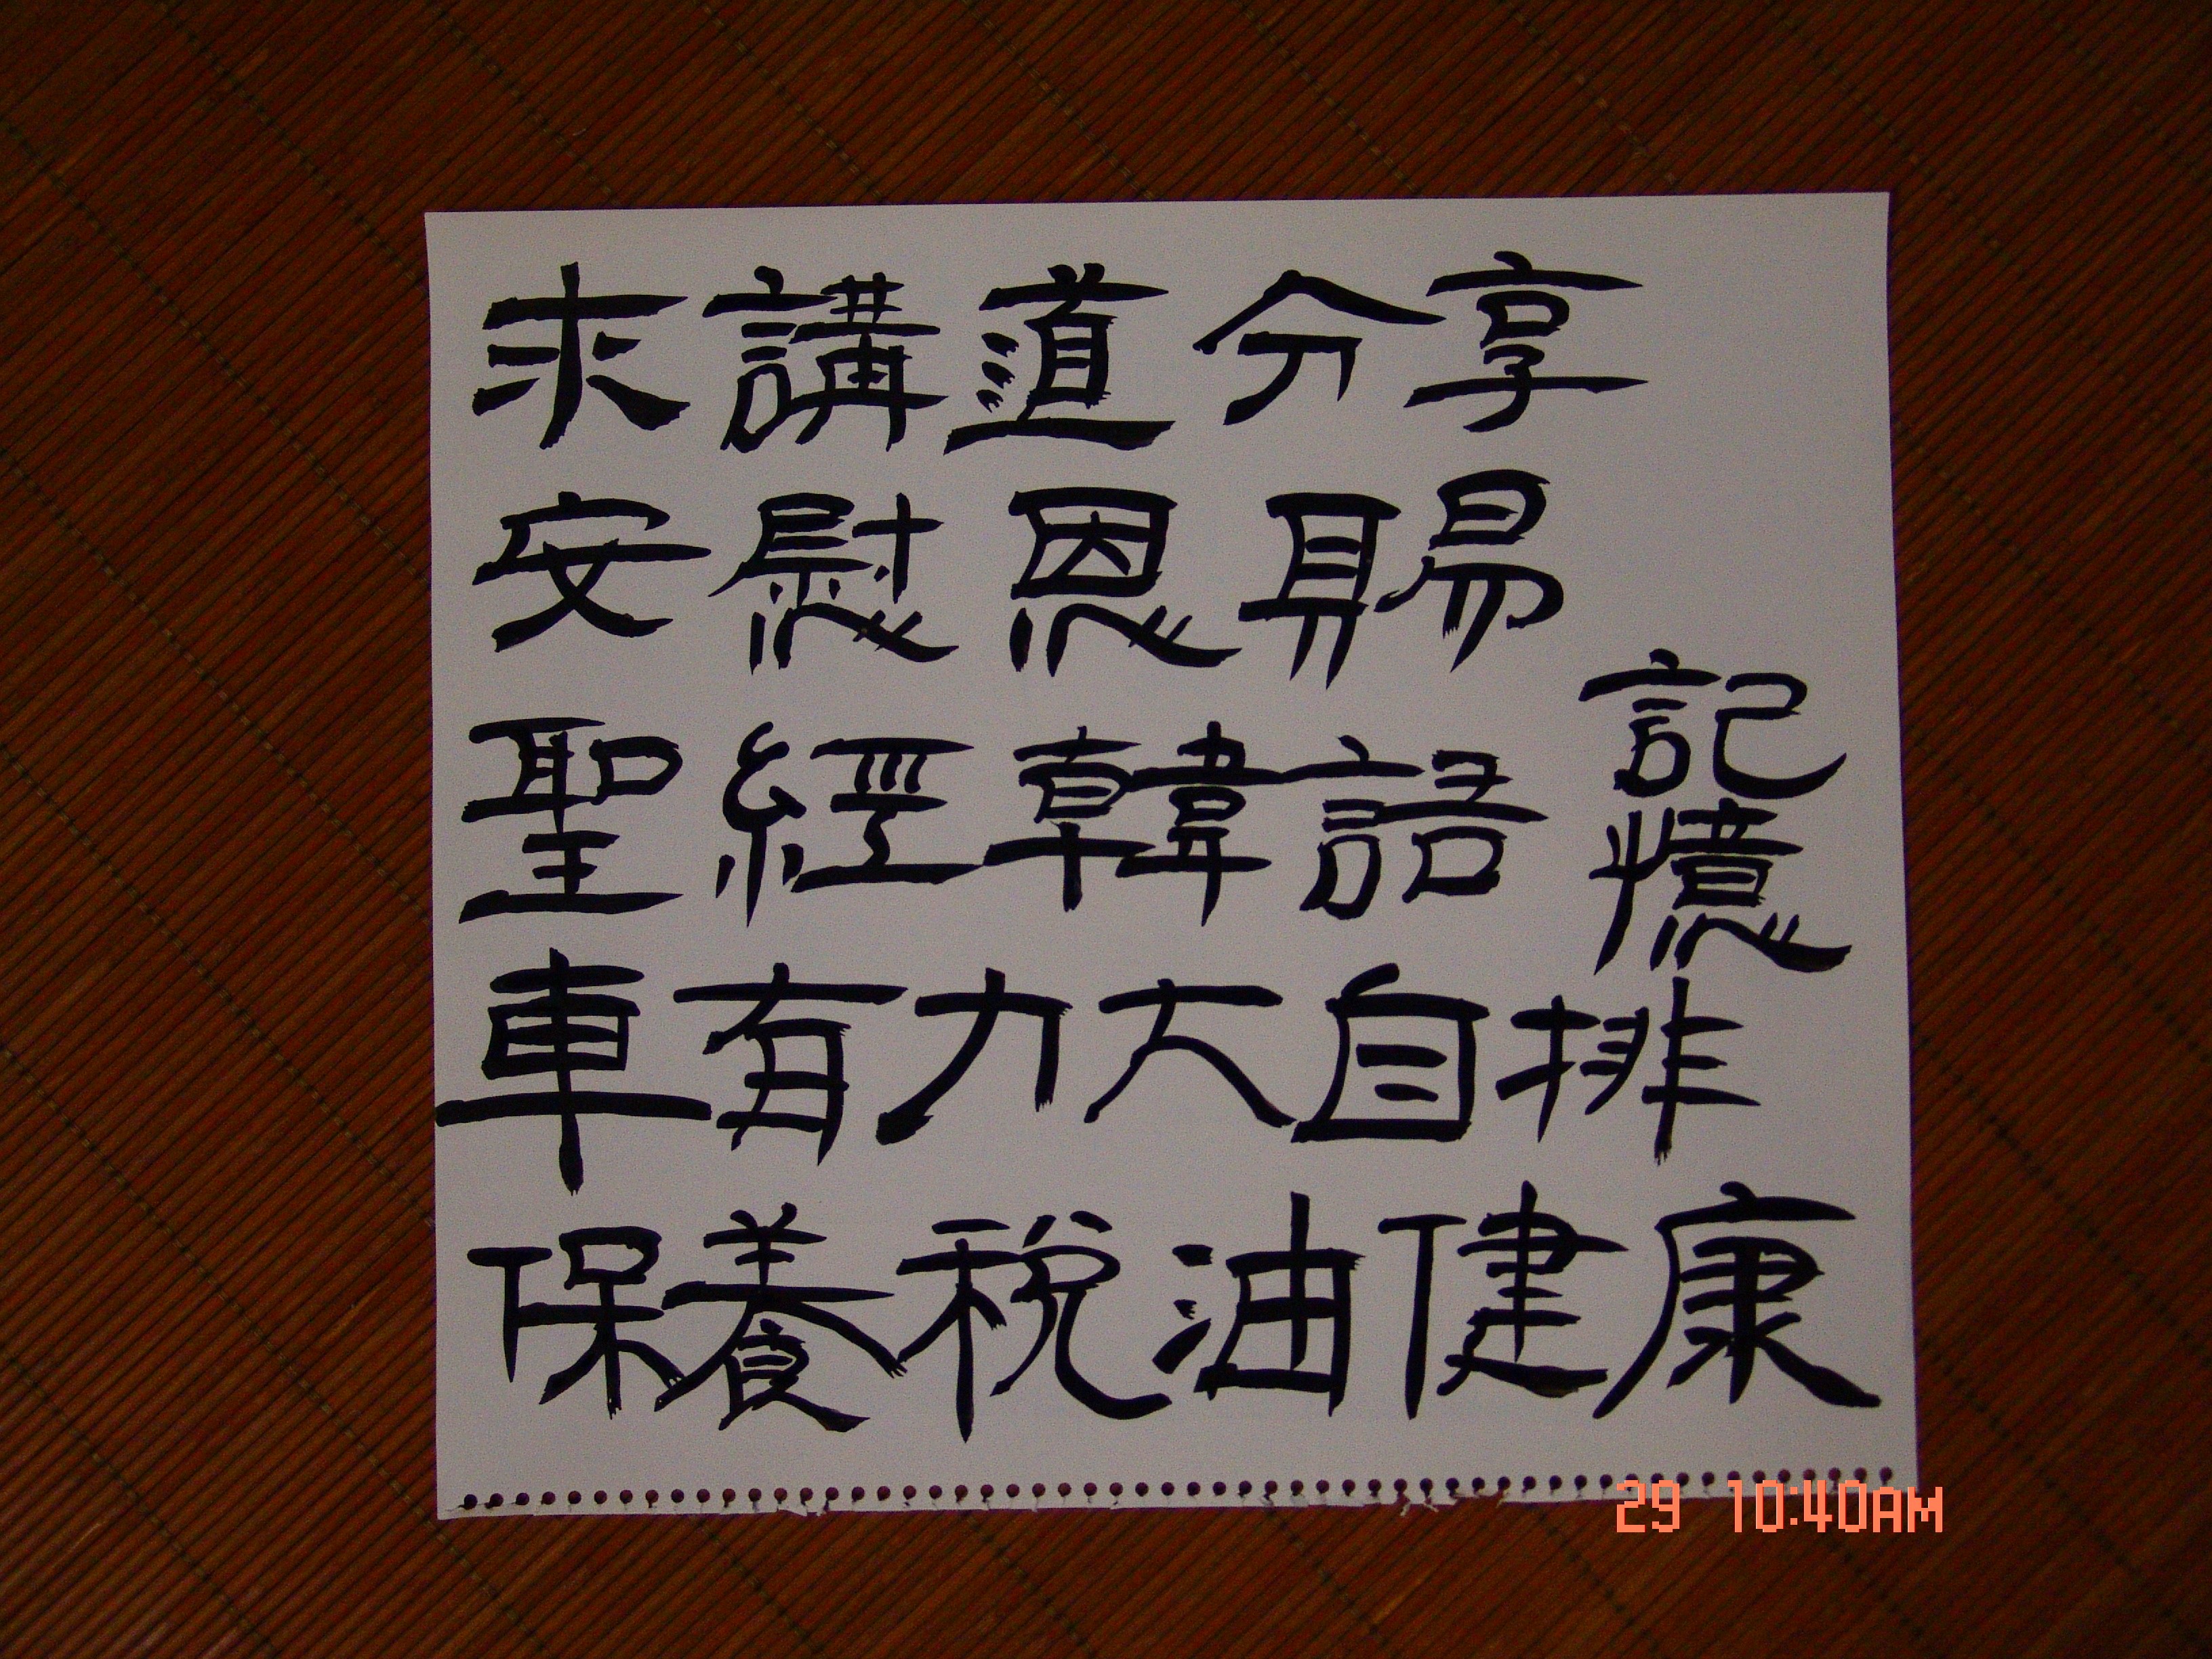 求講道分享
安慰恩賜
聖經韓語記憶
車有力大自排
保養稅油健康
29 10:40AM